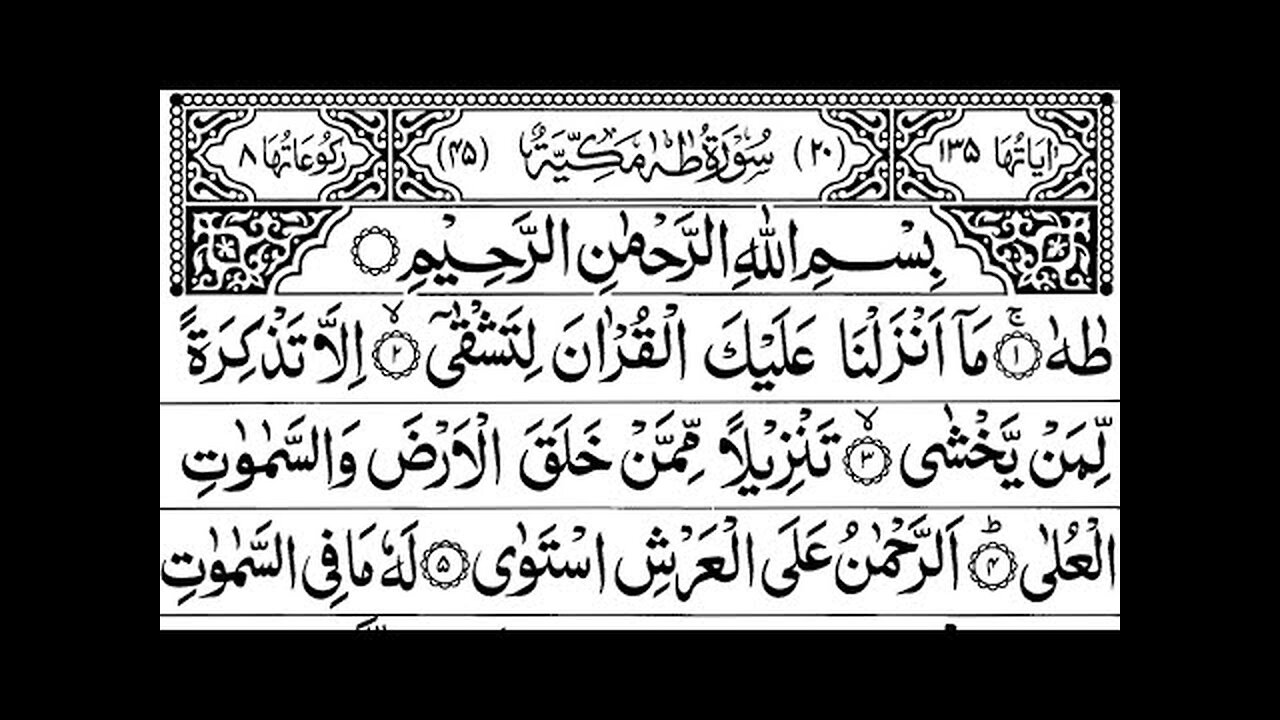 اٰيَاتُهَا ١٣٥ (٢٠) سُوْرَةُ طٰهٰ مَكِّيَّةٌ (٤٥) رُكُوْعَاتُهَا ٨
بِسْمِ اللّٰهِ الرَّحْمٰنِ الرَّحِيْمِ
طٰهٰ ۚ‏﴿١﴾ مَاۤ اَنْزَلْنَا عَلَيْكَ الْقُرْاٰنَ لِتَشْقٰٓى ۙ‏﴿٢﴾ اِلَّا تَذْكِرَةً
لِّمَنْ يَّخْشٰى ۙ‏﴿٣﴾ تَنْزِيْلًا مِّمَّنْ خَلَقَ الْاَرْضَ وَالسَّمٰوٰتِ
الْعُلٰى ؕ‏﴿٤﴾ اَلرَّحْمٰنُ عَلَى الْعَرْشِ اسْتَوٰى ﴿٥﴾ لَهٗ مَا فِى السَّمٰوٰتِ